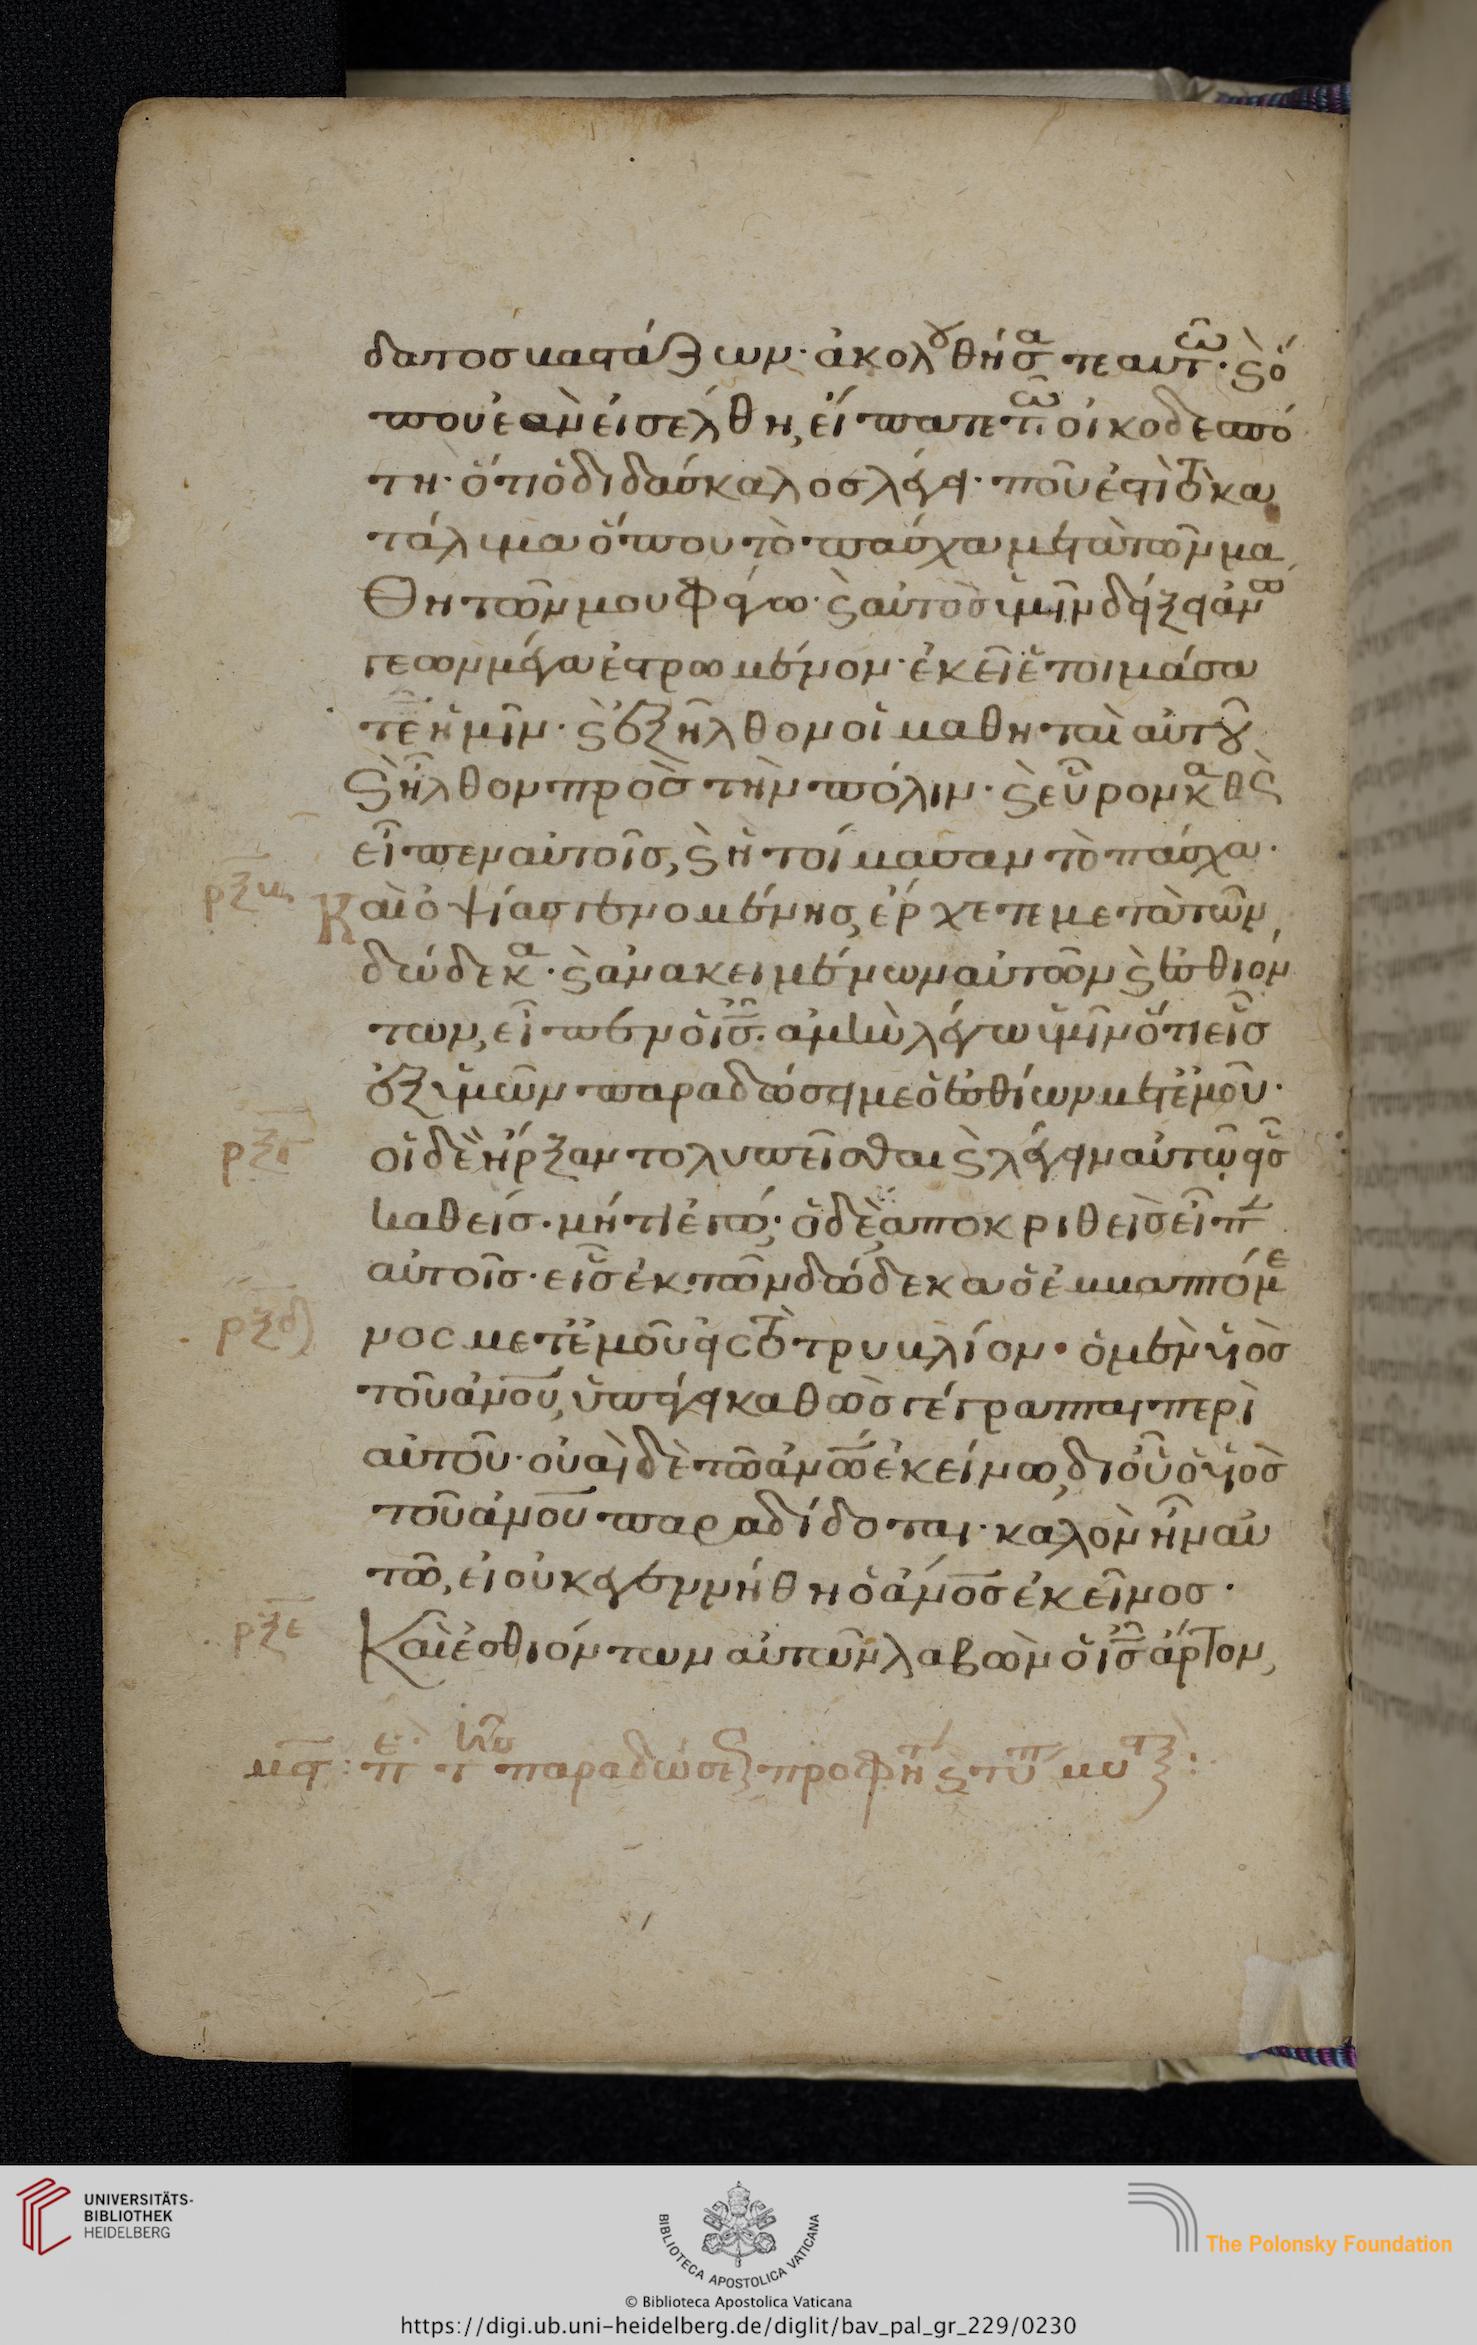 δατος βαστάζων· ἀκολουθήσατε αὐτῶ· ϗ ὅ
που ἐὰν εἰσέλθη, εἴπατε τῶ οἰκοδεσπό
τη· ὅτι ὁ διδάσκαλος λέγει· ποῦ ἐστὶ τὸ κα
τάλυμα ὅπου τὸ πάσχα μετὰ τῶν μα
θητῶν μου φάγω· ϗ αὐτὸς ὑμῖν δείξει ἀνώ
γεων μέγα ἐστρωμένον· ἐκεῖ ἑτοιμάσα
τε ἡμῖν· ϗ ἐξῆλθον οἱ μαθηταὶ αὐτοῦ
ϗ ἦλθον πρὸς τὴν πόλιν· ϗ εὗρον καθὼς
εἶπεν αὐτοῖς, ϗ ἡτοίμασαν τὸ πάσχα·
Καὶ ὀψίας γενομένης, ἔρχεται μετὰ τῶν
δώδεκα· ϗ ἀνακειμένων αὐτῶν ϗ ἐσθιόν
των, εἶπεν ὁ ις̅· ἀμὴν λέγω ὑμῖν ὅτι εἷς
ἐξ ὑμῶν παραδώσει με ὁ ἐσθίων μετ' ἐμοῦ·
οἱ δὲ ἤρξαντο λυπεῖσθαι ϗ λέγειν αὐτῶ εἷς
καθεῖς· μήτι ἐγώ; ὁ δὲ ἀποκριθεὶς εἶπεν
αὐτοῖς· εἷς ἐκ τῶν δώδεκα ὁ ἐμβαπτόμε
νος μετ' ἐμοῦ εἰς τὸ τρυβλίον· ὁ μὲν υἱὸς
τοῦ ἀν̅ου̅, ὑπάγει καθὼς γέγραπται περὶ
αὐτοῦ· οὐαὶ δὲ τῶ ἀν̅ω̅ ἐκείνω, δι οὗ ὁ υἱὸς
τοῦ ἀν̅ου̅ παραδίδοται· καλὸν ἦν αὐ
τῶ, εἰ οὐκ ἐγεννήθη ὁ ἄν̅ο̅ς ἐκεῖνος·
Καὶ ἐσθιόντων αὐτῶν λαβὼν ὁ ις̅ ἄρτον,
ρξγ
ρξδ
ρξε
UNIVERSITÄTS-
BIBLIOTHEK
HEIDELBERG
BIBLIOTECA APOSTOLICA VATICANA
© Biblioteca Apostolica Vaticana
The Polonsky Foundation
https://digi.ub.uni-heidelberg.de/diglit/bav_pal_gr_229/0230